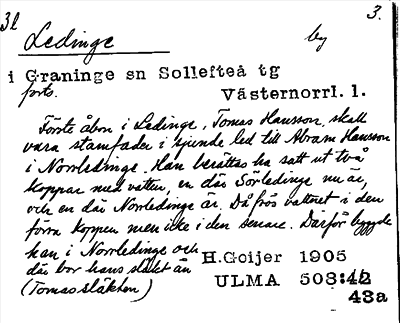 32 3.
Ledinge by
i Graninge sn Sollefteå tg
forts. Västernorrl. l.
Förste åbon i Ledinge, Tomas Hansson, skall
vara stamfader i sjunde led till Abram Hansson
i Norrledinge. Han berättas ha satt ut två
koppar med vatten, en där Sörledinge nu är,
och en där Norrledinge är. Då frös vattnet i den
förra koppen men icke i den senare. Därför byggde
han i Norrledinge och
där bor hans släkt än H.Goijer 1905
(Tomassläkten) ULMA 508:42
43a